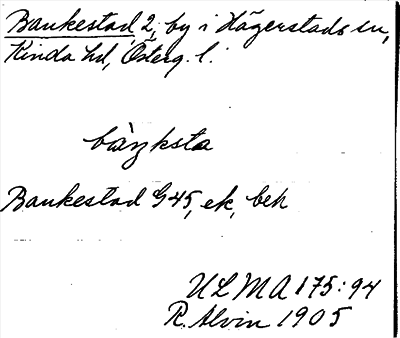 Bankestad 2, by i Hägerstads sn,
Kinda hd, Österg. l.
bàŋksta
Bankestad G45, ek, beh
ULMA 175:94
R. Alvin 1905